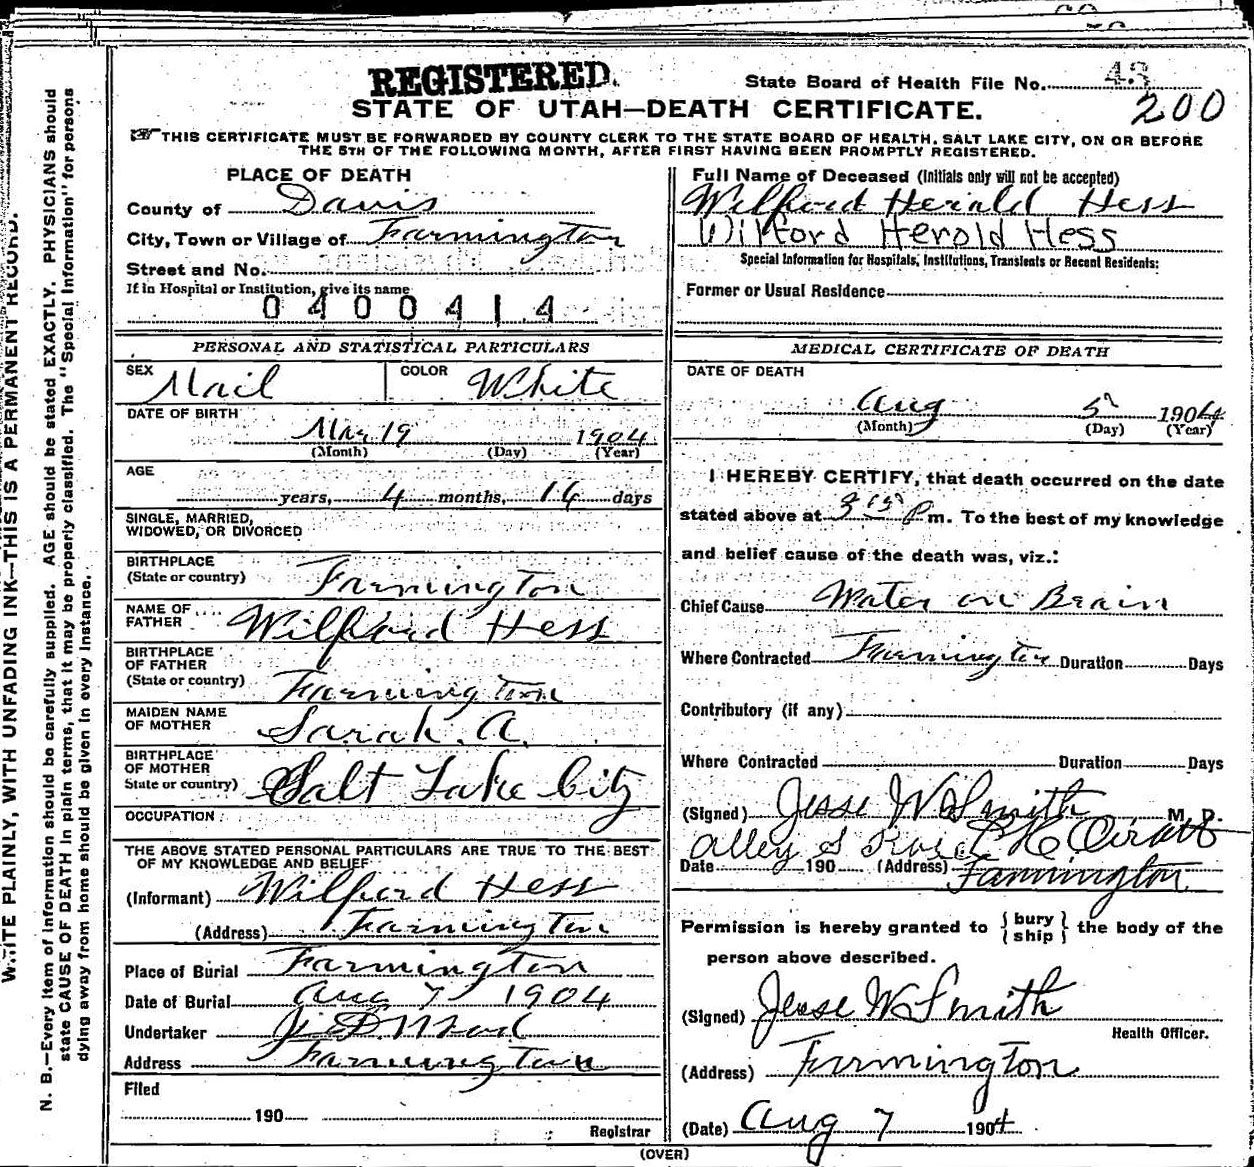 REGISTERED.
State Board of Health File No. 43
200
STATE OF UTAH—DEATH CERTIFICATE.
THIS CERTIFICATE MUST BE FORWARDED BY COUNTY CLERK TO THE STATE BOARD OF HEALTH, SALT LAKE CITY, ON OR BEFORE
THE 5TH OF THE FOLLOWING MONTH, AFTER FIRST HAVING BEEN PROMPTLY REGISTERED.
WRITE PLAINLY, WITH UNFADING INK—THIS IS A PERMANENT RECORD.
N. B.—Every item of information should be carefully supplied. AGE should be stated EXACTLY. PHYSICIANS should
state CAUSE OF DEATH in plain terms, that it may be properly classified. The "Special Information" for persons
dying away from home should be given in every instance.
PLACE OF DEATH
County of Davis
City, Town or Village of Farmington
Street and No.
If in Hospital or Institution, give its name
0400414
PERSONAL AND STATISTICAL PARTICULARS
SEX Mail COLOR White
DATE OF BIRTH
Mar 19 1904
(Month) (Day) (Year)
AGE
years, 4 months, 14 days
SINGLE, MARRIED,
WIDOWED, OR DIVORCED
BIRTHPLACE
(State or country) Farmington
NAME OF
FATHER Wilford Hess
BIRTHPLACE
OF FATHER
(State or country) Farmington
MAIDEN NAME
OF MOTHER Sarah. A.
BIRTHPLACE
OF MOTHER
State or country) Salt Lake City
OCCUPATION
THE ABOVE STATED PERSONAL PARTICULARS ARE TRUE TO THE BEST
OF MY KNOWLEDGE AND BELIEF
(Informant) Wilford Hess
(Address) Farmington
Place of Burial Farmington
Date of Burial Aug 7 1904
Undertaker
Address Farmington
Filed
190
Registrar
Full Name of Deceased (Initials only will not be accepted)
Wilford Herald Hess
Wilford Herold Hess
Special Information for Hospitals, Institutions, Transients or Recent Residents:
Former or Usual Residence
MEDICAL CERTIFICATE OF DEATH
DATE OF DEATH
Aug 5 1904
(Month) (Day) (Year)
I HEREBY CERTIFY, that death occurred on the date
stated above at 3 15 P m. To the best of my knowledge
and belief cause of the death was, viz.:
Chief Cause Water on Brain
Where Contracted Farmington Duration Days
Contributory (if any)
Where Contracted Duration Days
(Signed) Jesse W Smith M. D.
Date 190 (Address) Farmington
Permission is hereby granted to { bury
ship } the body of the
person above described.
(Signed) Jesse W Smith
Health Officer.
(Address) Farmington
(Date) Aug 7 1904
(OVER)